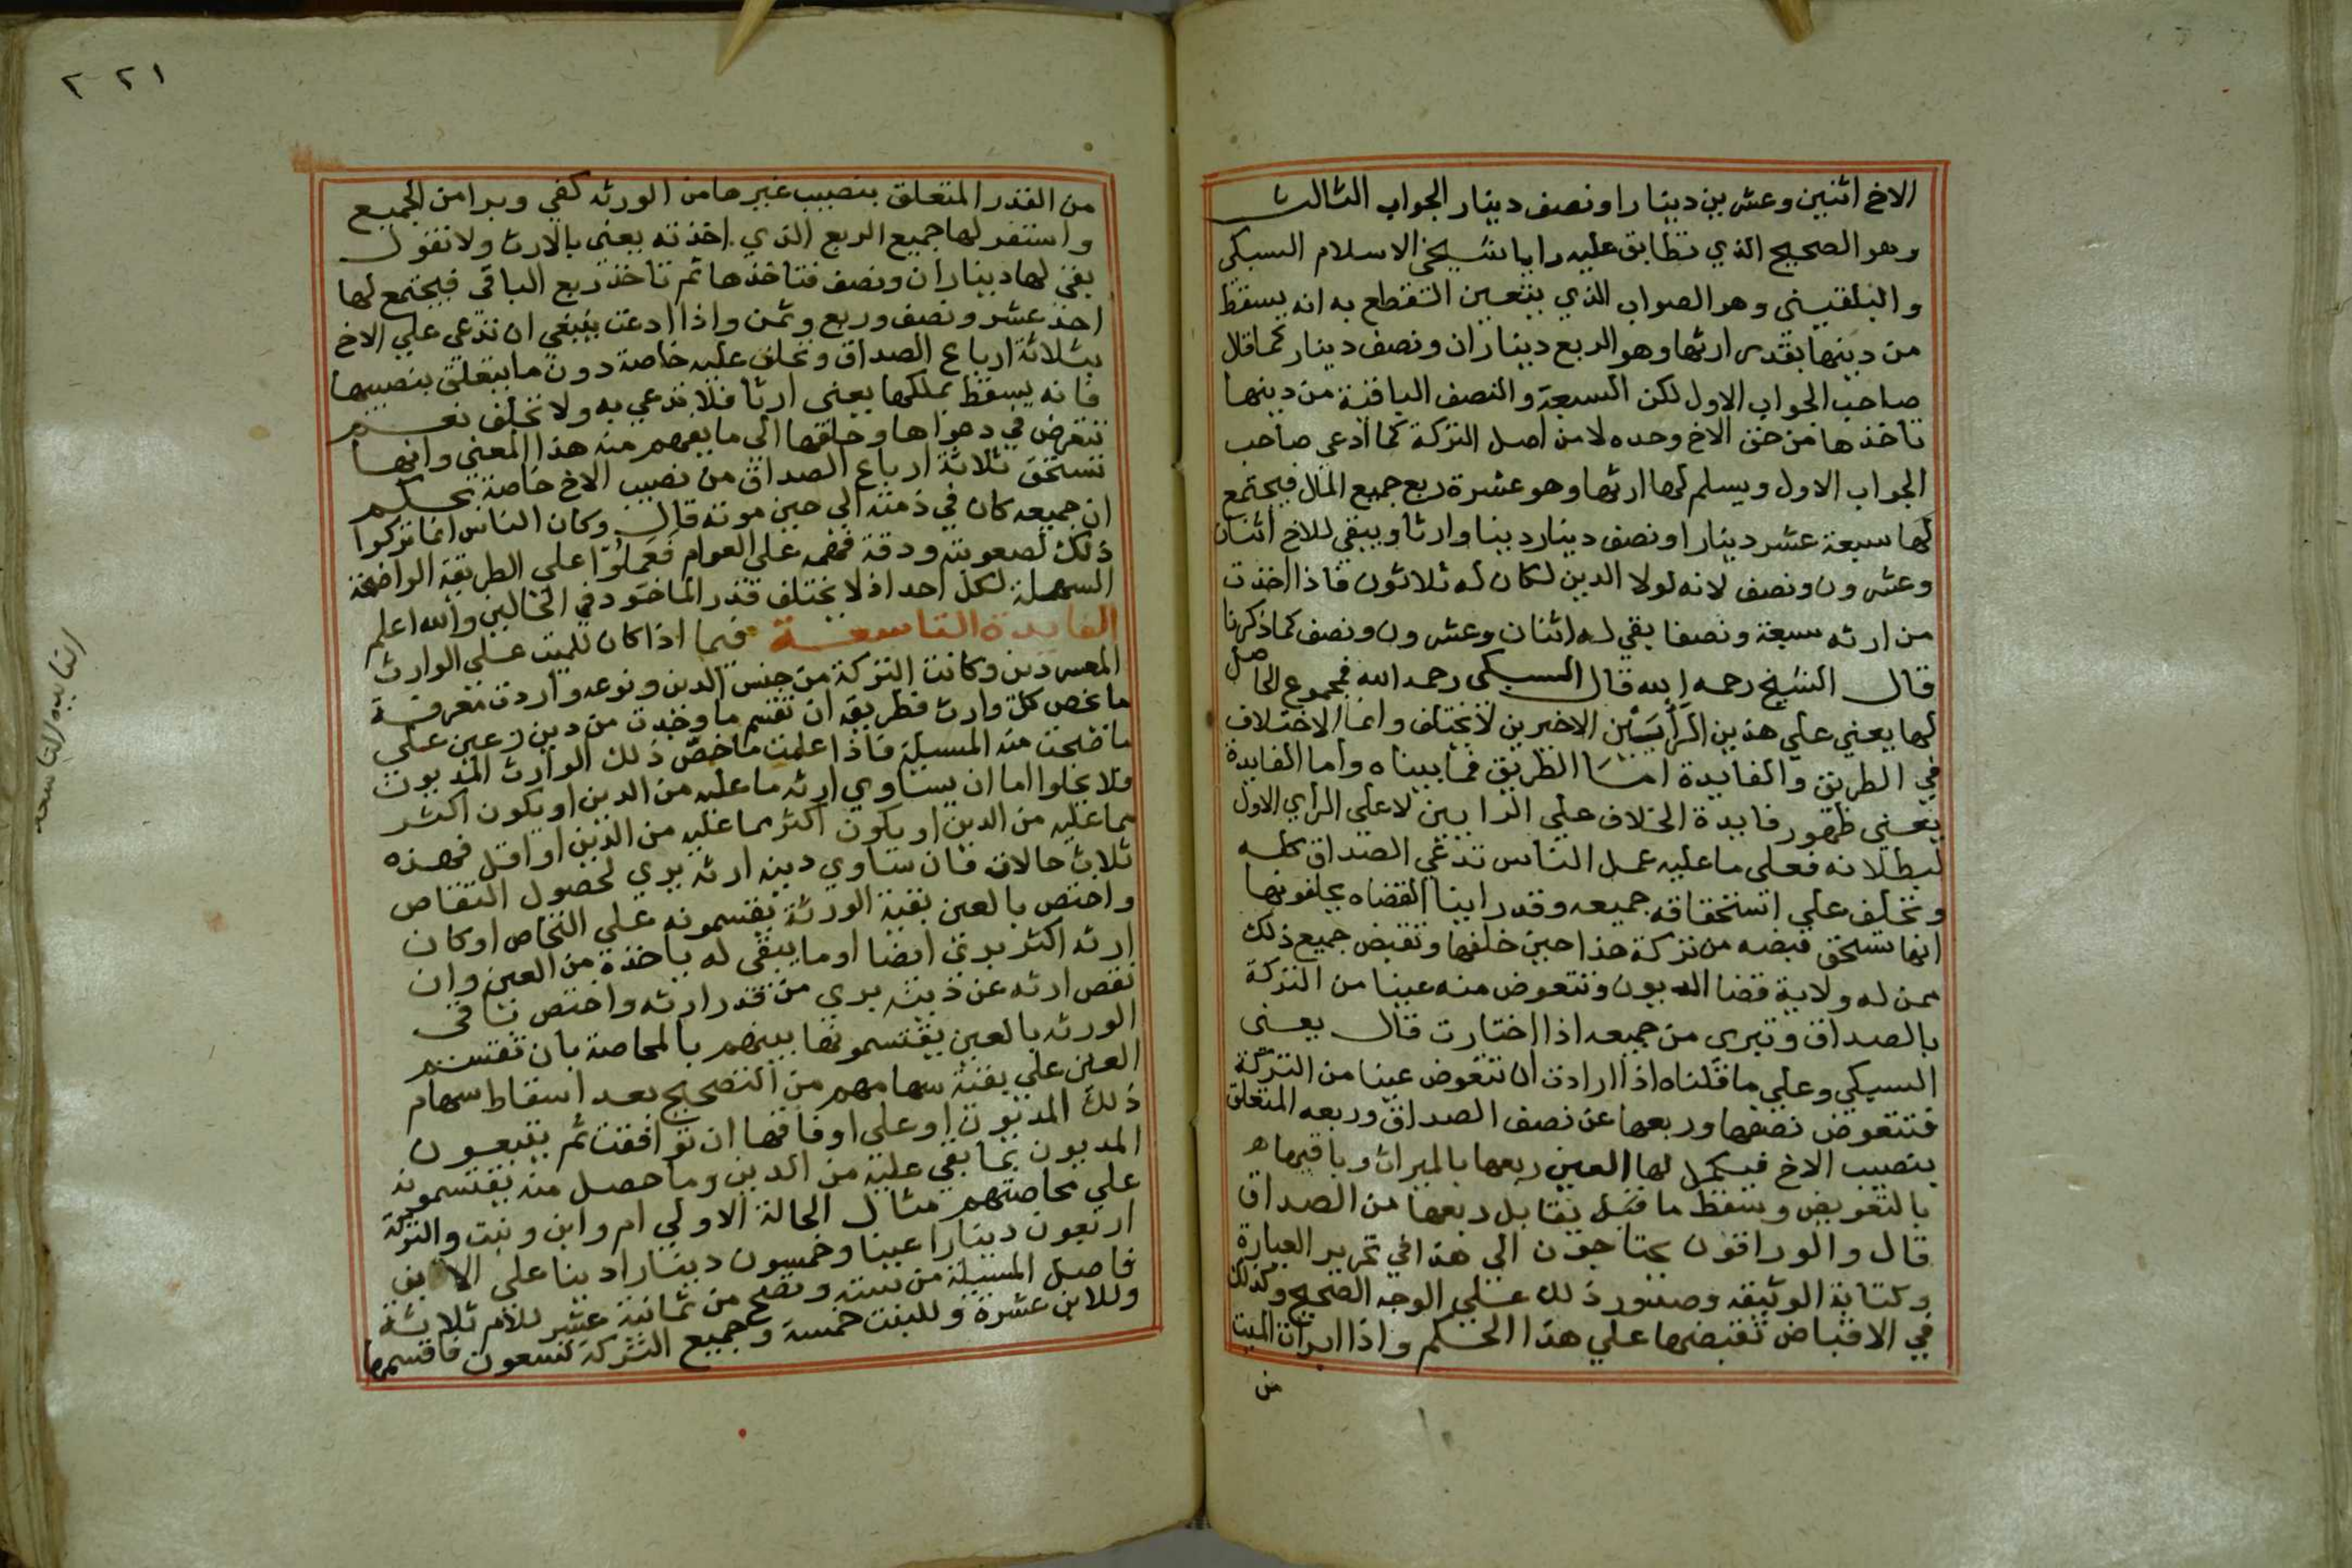 الاخ اثنين وعشرين دينارا ونصف دينار الجواب الثالث
وهو الصحيح الذي تطابق عليه رايا شيخي الاسلام السبكي
والبلقيني وهو الصواب الذي يتعين القطع به انه يسقط
من دينها بقدر ارثها وهو الربع ديناران ونصف دينار كما قال
صاحب الجواب الاول لكن السبعة والنصف الباقية من دينها
تاخذها من حق الاخ وحده لا من اصل التركة كما ادعي صاحب
الجواب الاول ويسلم لها ارثها وهو عشرة ربع جميع المال فيجتمع
لها سبعة عشر دينارا ونصف دينار دينا وارثا ويبقي للاخ اثنان
وعشرون ونصف لانه لولا الدين لكان له ثلاثون فاذا اخذت
من ارثه سبعة ونصفا بقي له اثنان وعشرون ونصف كما ذكرنا
قال الشيخ رحمه الله قال السبكي رحمه الله فمجموع الحاصل
لها يعني علي هذين الرأيين الاخيرين لا يختلف وانما الاختلاف
في الطريق والفايدة اما الطريق فما بيناه وأما الفايدة
يعني ظهور فايدة الخلاف علي الرايين لا علي الراي الاول
لبطلانه فعلي ما عليه عمل الناس تدعي الصداق كله
وتحلف علي استحقاقه جميعه وقد راينا القضاه يحلفونها
انها تستحق قبضه من تركة هذا حين حلفها وتقبض جميع ذلك
ممن له ولاية قضا الديون وتتعوض منه عينا من التركة
بالصداق وتبري من جميعه اذا اختارت قال يعني
السبكي وعلي ما قلناه اذا ارادت ان تتعوض عينا من التركة
فتتعوض نصفها وربعها عن نصف الصداق وربعه المتعلق
بنصيب الاخ فيكمل لها العين ربعها بالميراث وباقيها
بالتعويض وسقط ما قبل يقابل ربعها من الصداق
قال والوراقون يحتاجون الي هذا في تحرير العبارة
وكتابة الوثيقه وصدور ذلك علي الوجه الصحيح وكذلك
في الاقباض تقبضها علي هذا الحكم واذا ابرات الميت
من
٢٢١
من القدر المتعلق بنصيب غيرها من الورثه كفي وبرا من الجميع
واستقر لها جميع الربع الذي اخذته يعني بالارث ولا نقول
بقي لها ديناران ونصف فتاخذها ثم تاخذ ربع الباقي فيجتمع لها
احد عشر ونصف وربع وثمن واذا ادعت ينبغي ان تدعي علي الاخ
بثلاثة ارباع الصداق وتحلف عليه خاصة دون ما يتعلق بنصيبها
فانه يسقط بملكها يعني ارثا فلا تدعي به ولا تحلف نعم
تتعرض في دعواها وحلفها الي ما يفهم منه هذا المعني وانها
تستحق ثلاثة ارباع الصداق من نصيب الاخ خاصة بحكم
ان جميعه كان في ذمته الي حين موته قال وكان الناس انما تركوا
ذلك لصعوبته ودقة فهمه علي العوام فعملوا علي الطريقة الواضحة
السهلة لكل احد اذ لا يختلف قدر الماخود في الحالين والله اعلم
الفايدة التاسعة فيما اذا كان للميت علي الوارث
المعسر دين وكانت التركة من جنس الدين ونوعه واردت معرفة
ما يخص كل وارث فطريقه ان تقسم ما وجدت من دين وعين علي
ما صحت منه المسيلة فاذا علمت ما خص ذلك الوارث المديون
فلا يخلوا اما ان يساوي ارثه ما عليه من الدين او يكون اكثر
مما عليه من الدين او يكون اكثر مما عليه من الدين او اقل فهذه
ثلاث حالات فان ساوي دينه ارثه بري لحصول التقاص
واختص بالعين بقية الورثة يقتسمونه علي التحاص او كان
ارثه اكثر بري ايضا او ما يبقي له ياخذه من العين وان
نقص ارثه عن دينه بري من قدر ارثه واختص باقي
الورثه بالعين يقتسمونها بينهم بالمحاصة بان تقسم
العين علي بقية سهامهم من التصحيح بعد اسقاط سهام
ذلك المديون او علي اوفاقها ان توافقت ثم يتبعون
المديون بما بقي عليه من الدين وما حصل منه يقتسمونه
علي محاصتهم مثال الحالة الاولي ام وابن وبنت والتركة
اربعون دينارا عينا وخمسون دينارا دينا علي الابن
فاصل المسيلة من ستة وتصح من ثمانية عشر للام ثلاثة
وللابن عشرة وللبنت خمسة وجميع التركة تسعون فاقسمها
الفايده التاسعه